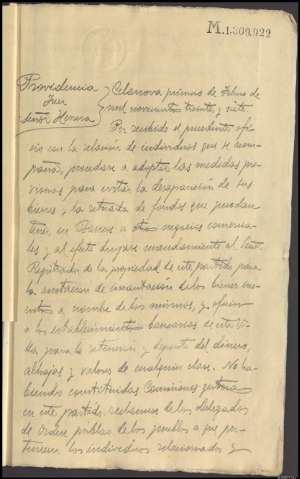 M.1.300.922
Providencia
Juez
Señor Herrera
Celanova primero de Febrero de
mil novecientos treinta y siete
Por recibido el precedente ofi-
cio con la relación de individuos que se acom-
paña, procédase a adoptar las medidas pre-
cisas para evitar la desaparición de sus
bienes y la retirada de fondos que puedan
tener en Bancos u otros negocios comercia-
les y al efecto diríjase mandamiento al Señor
Registrador de la propiedad de este partido para
la anotación de incautación de los bienes
a nombre de los mismos, y oficios
a los establecimientos bancarios de esta Vi-
lla para la retención y depósito del dinero,
alhajas y valores de cualquier clase. No ha-
biendo constituidas Comisiones gestoras
en este partido reclámese de los delegados
de orden público de los pueblos a que per-
tenecen los individuos relacionados y